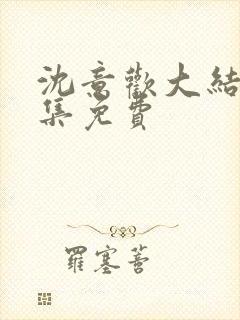 沈意歡大結
集免費
羅塞菩